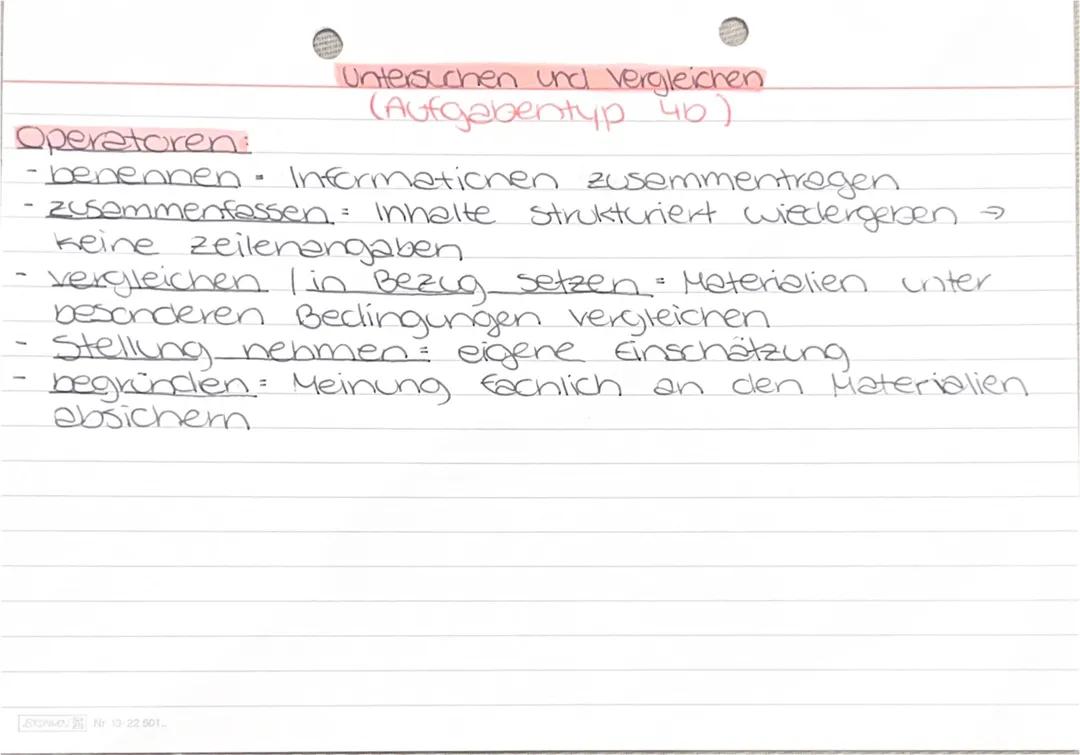 Untersuchen und Vergleichen
(Aufgabentyp 4b)
Operatoren:
- benennen = Informationen zusammentragen
- zusammenfassen = Inhalte strukturiert wiedergeben →
keine Zeilenangaben
- vergleichen / in Bezug setzen = Materialien unter
besonderen Bedingungen vergleichen
- Stellung nehmen = eigene Einschätzung
- begründen = Meinung fachlich an den Materialien
absichern
Nr. 13-22 501